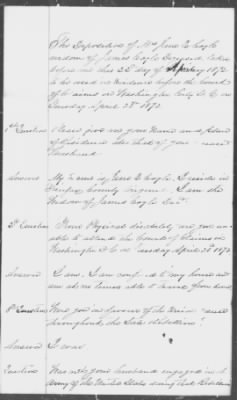 The Deposition of Mrs Jane E Coyle
widow of James Coyle Deceased taken
before me this 22 day of April 1872
to be used in evidence before the Court
of Claims in Washington City D. C. on
Tuesday April 23d 1872.
1st Question Please give me your Name and place
of Residence also that of your
Husband.
Answer My Name is Jane E Coyle. I reside in
Fairfax County Virginia. I am the
Widow of James Coyle Decd.
2d Question From Physical disability are you un-
able to attend the Court of Claims in
Washington D. C. on Tuesday April 23d 1872
Answer I am. I am confined to my house and
am at no times able to leave
3d Question Were you in favour of the Union cause
throughout the late rebellion?
Answer I was
Question Was not your husband engaged in the
Army of the United States during that Rebellion